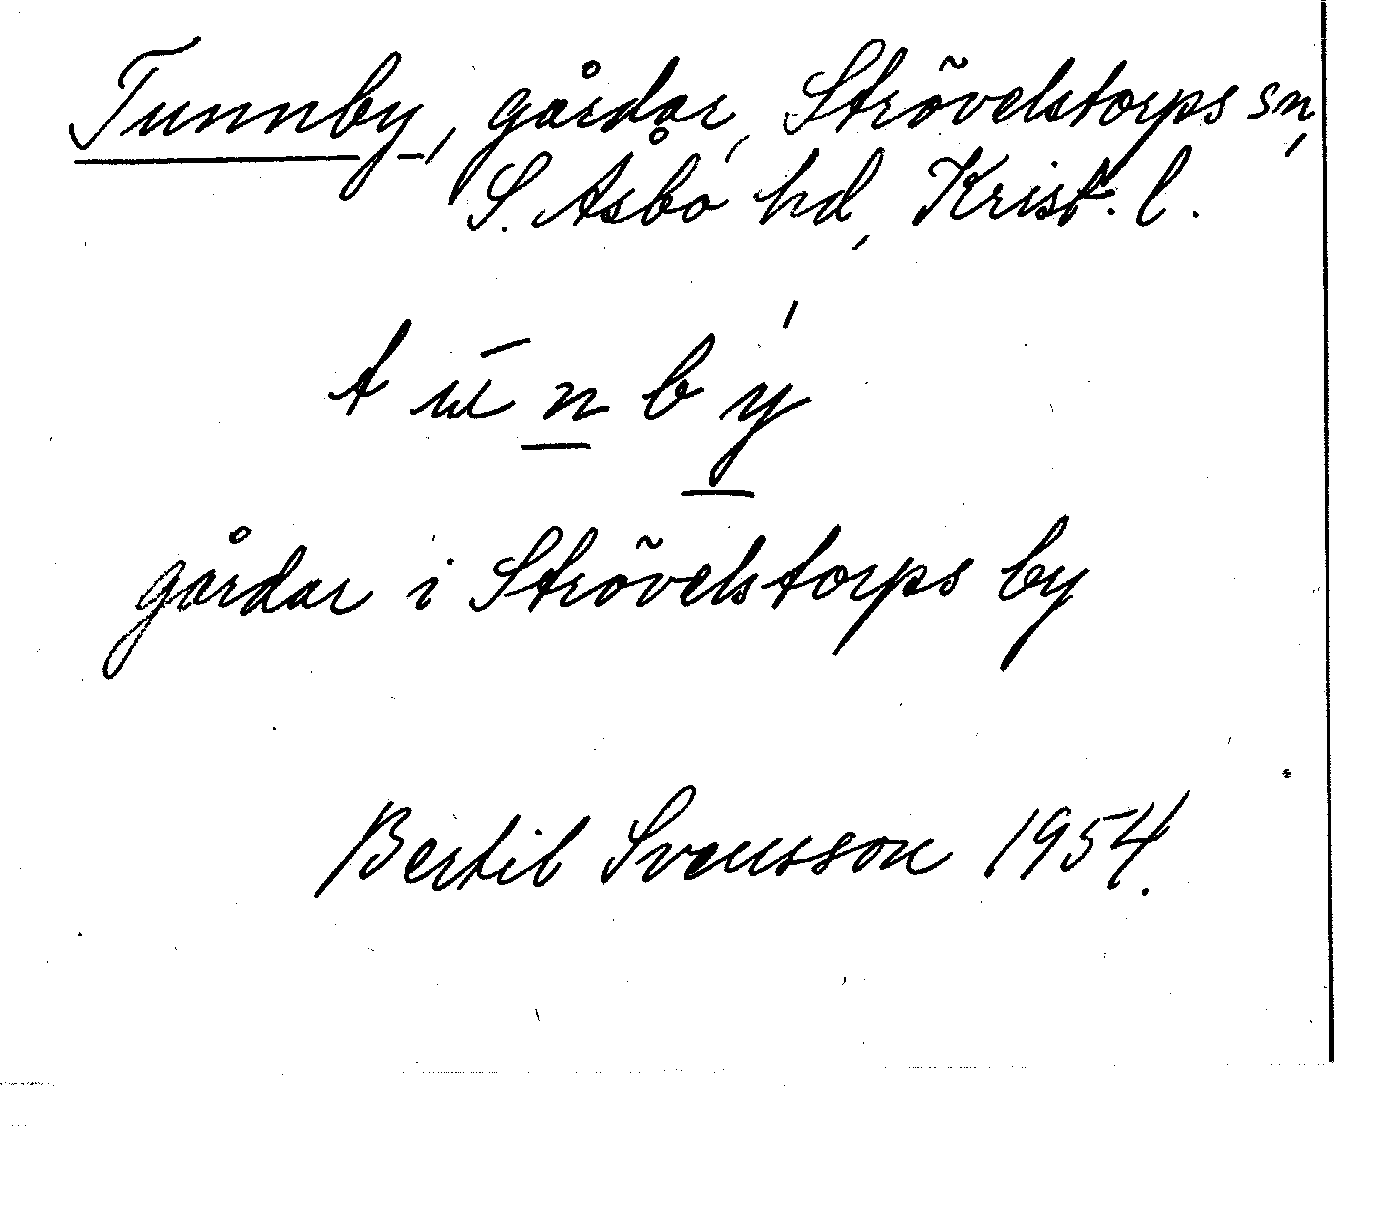 Tunnby, gårdar, Strövelstorps sn,
S. Åsbo hd, Krist. l.
gårdar i Strövelstorps by
Bertil Svensson 1954.